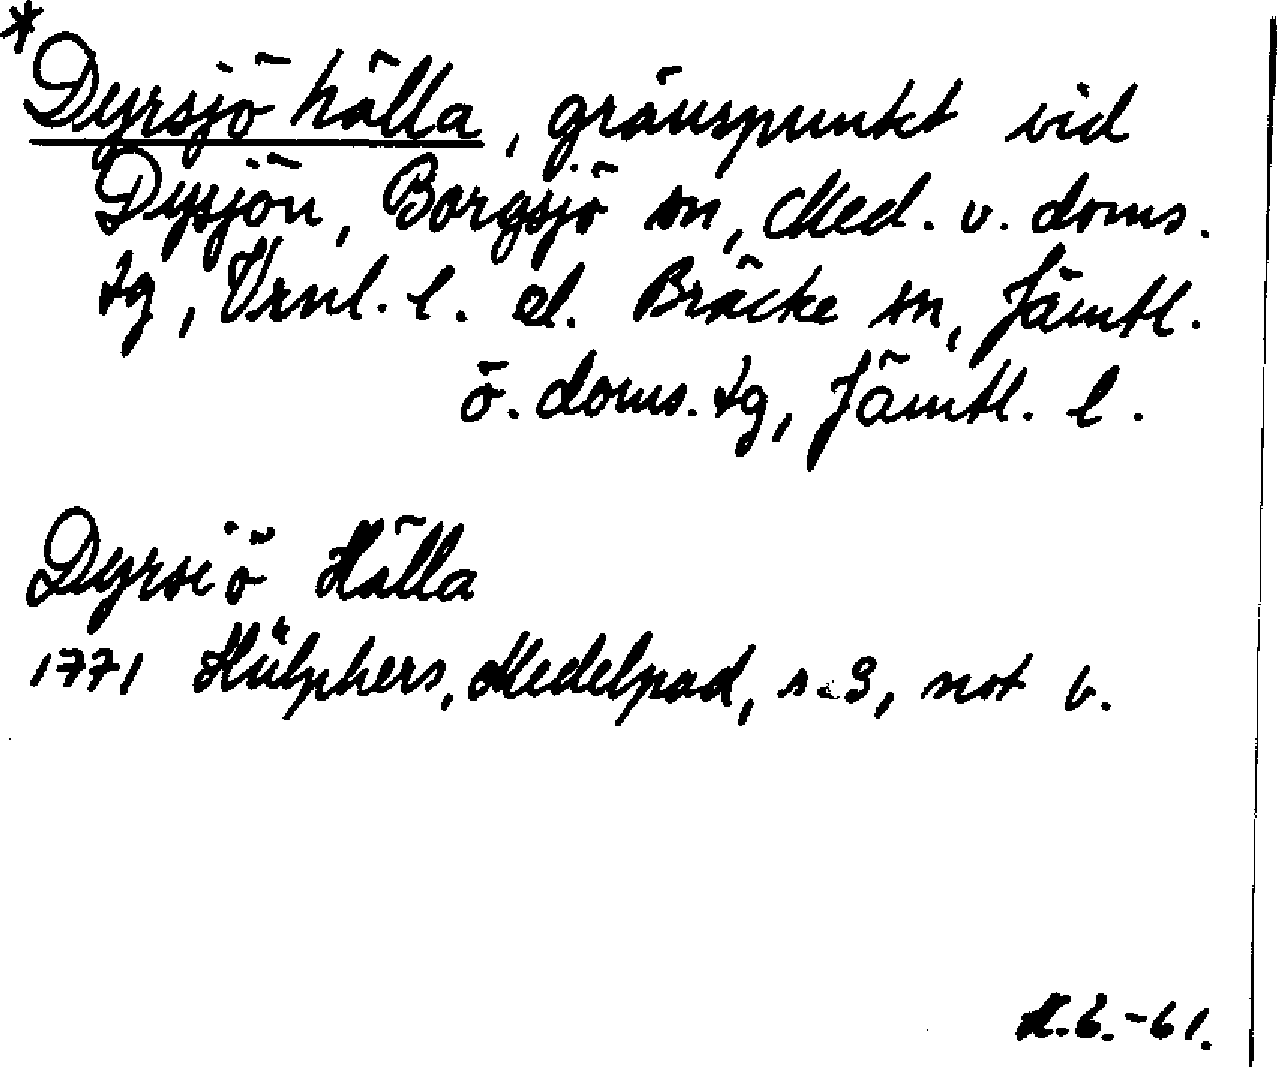 *Dyrsjö hälla, gränspunkt vid
Dysjön, Borgsjö sn, Med. v. doms.
tg, Vrnl. l. el. Bräcke sn, Jämtl.
ö. doms. tg, Jämtl. l.
Dyrsiö Hälla
1771 Hülphers, Medelpad, s. 3, not b.
-61.